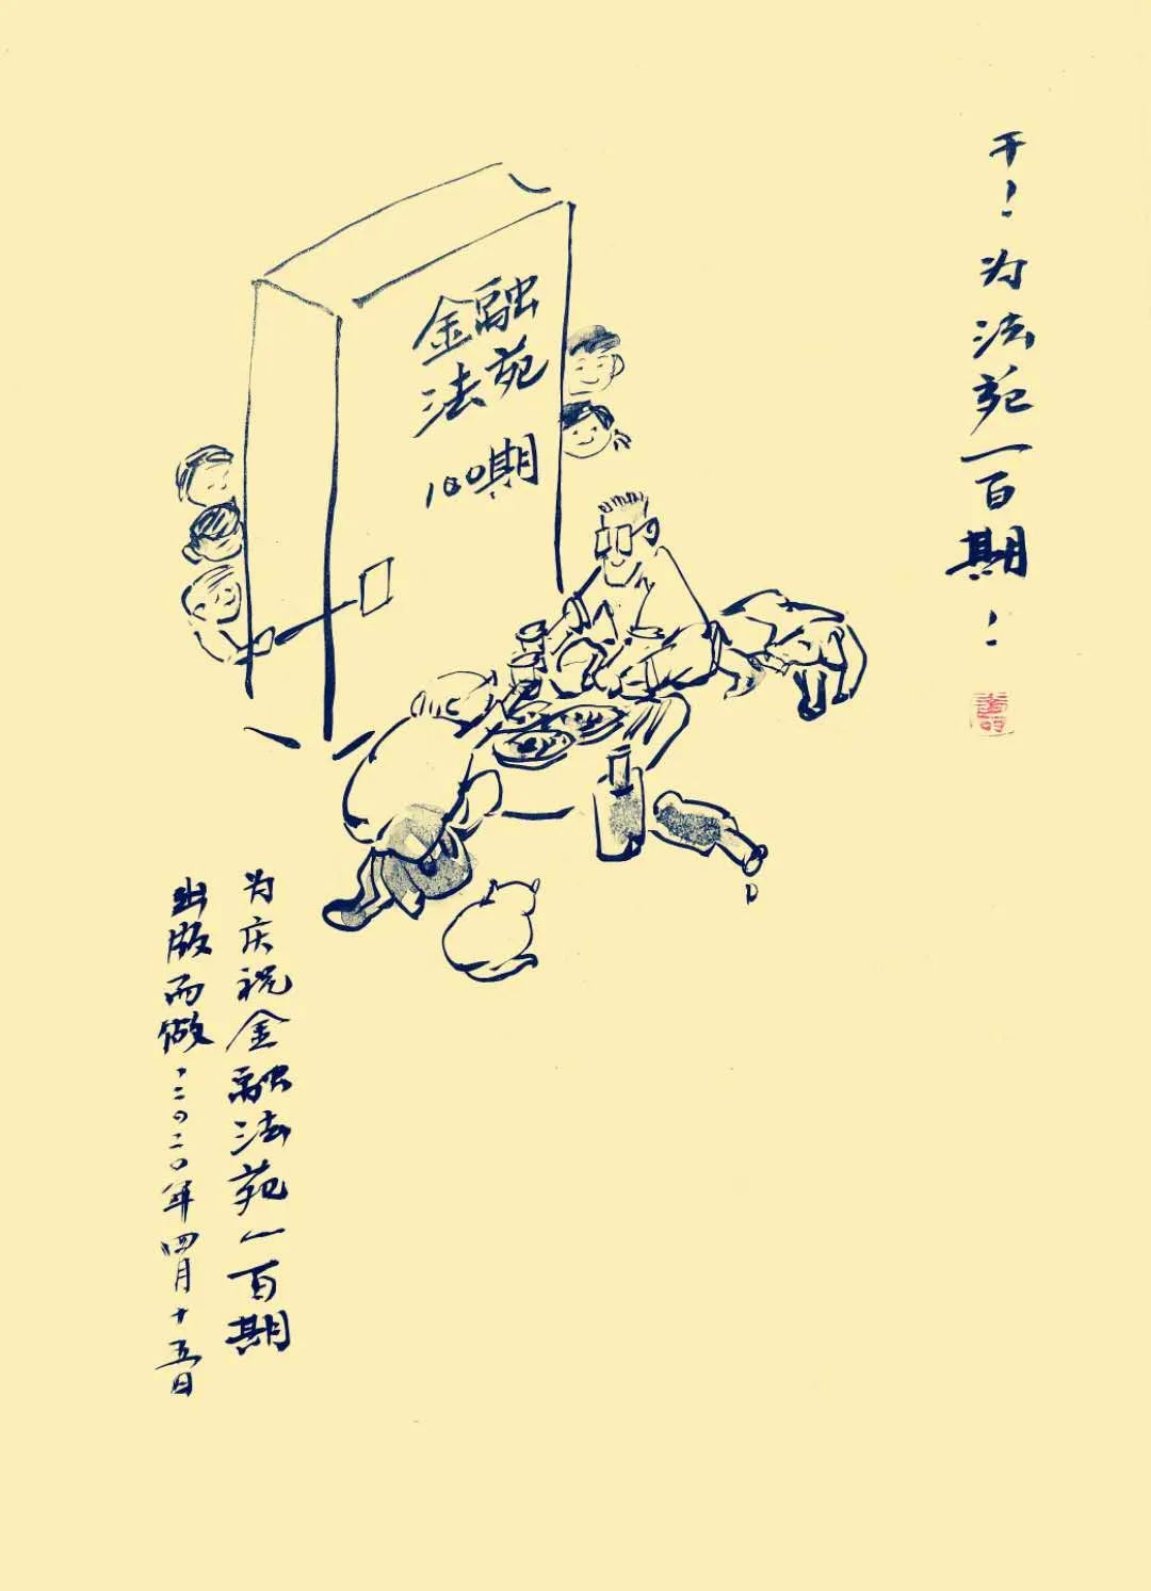 干！为法苑一百期！
金融
法苑
100期
为庆祝金融法苑一百期
出版而做．二〇二〇年四月十五日